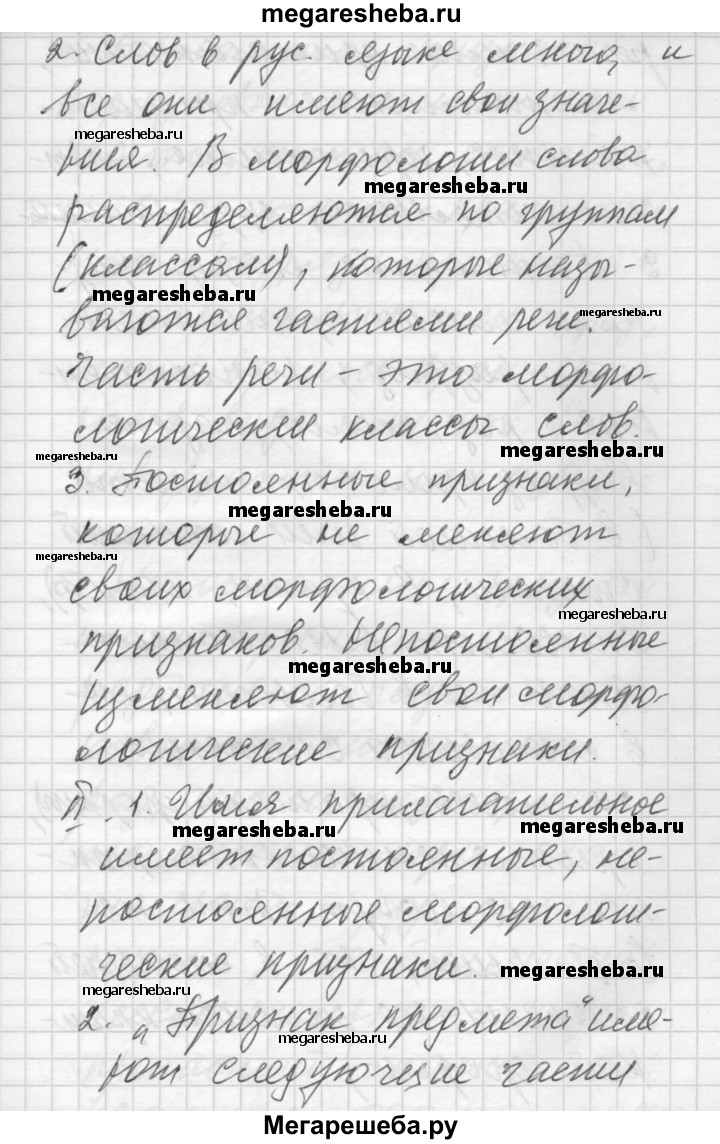 megaresheba.ru
2. Слов в рус. языке много, и
все они имеют свои значе-
megaresheba.ru
ния. В морфологии слова
megaresheba.ru
распределяются по группам
(классам), которые назы-
megaresheba.ru
megaresheba.ru
ваются частями речи.
Часть речи – это морфо-
логический классы слов.
megaresheba.ru
megaresheba.ru
3. Постоянные признаки,
megaresheba.ru
которые не меняют
megaresheba.ru
своих морфологических
megaresheba.ru
признаков. Непостоянные
megaresheba.ru
изменяют свои морфо-
логические признаки.
II. 1. Имя прилагательное
megaresheba.ru
megaresheba.ru
имеет постоянные, не-
постоянные морфологи-
ческие признаки.
megaresheba.ru
megaresheba.ru
2. „Признак предмета“ име-
megaresheba.ru
ют следующие части
Мегарешеба.ру